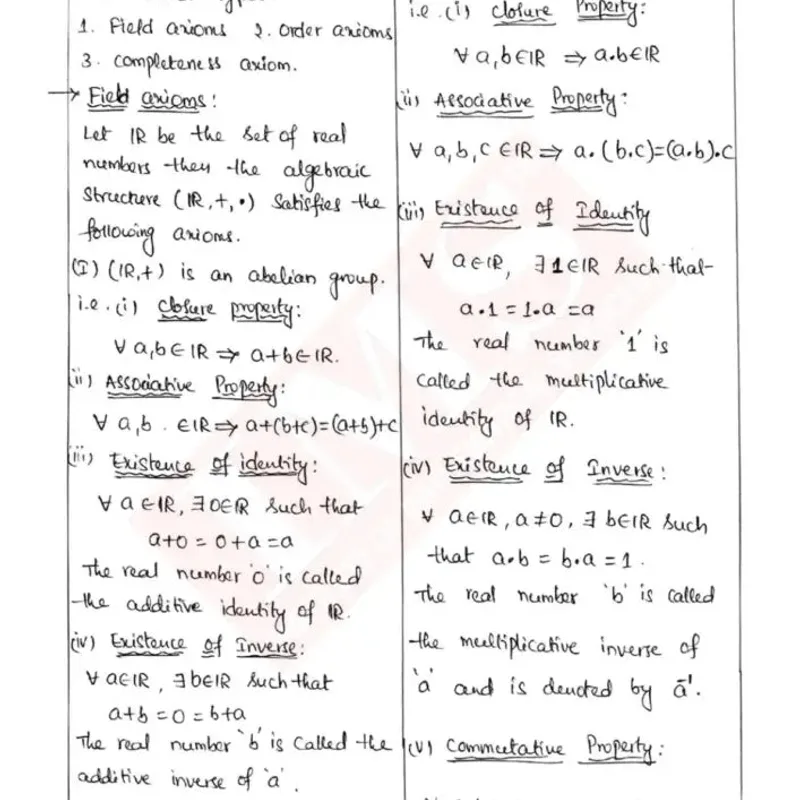 1. Field axioms 2. Order axioms
3. Completeness axiom.
→ Field axioms:
Let IR be the set of real
numbers then the algebraic
Structure (IR,+,•) satisfies the
following axioms.
(I) (IR,+) is an abelian group.
i.e. (i) closure property:
∀ a,b ∈ IR ⇒ a+b ∈ IR.
(ii) Associative Property:
∀ a,b . ∈ IR ⇒ a+(b+c)=(a+b)+c
(iii) Existence of identity:
∀ a ∈ IR, ∃ 0 ∈ IR such that
a+0 = 0+a = a
The real number '0' is called
the additive identity of IR.
(iv) Existence of Inverse:
∀ a ∈ IR, ∃ b ∈ IR such that
a+b = 0 = b+a
The real number 'b' is called the
additive inverse of 'a'.
i.e. (i) closure Property:
∀ a,b ∈ IR ⇒ a•b ∈ IR
(ii) Associative Property:
∀ a,b,c ∈ IR ⇒ a•(b•c)=(a•b)•c
(iii) Existence of Identity
∀ a ∈ IR, ∃ 1 ∈ IR such that
a•1 = 1•a = a
The real number '1' is
called the multiplicative
identity of IR.
(iv) Existence of Inverse:
∀ a ∈ IR, a ≠ 0, ∃ b ∈ IR such
that a•b = b•a = 1.
The real number 'b' is called
the multiplicative inverse of
'a' and is denoted by a⁻¹.
(v) Commutative Property: